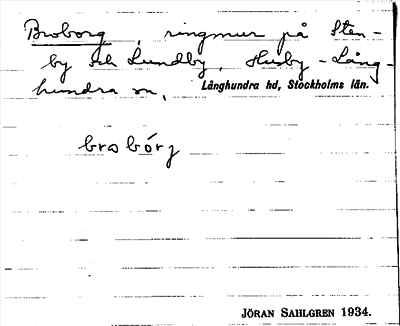 Broborg, ringmur på Sten-
by och Lundby, Husby-Lång-
hundra sn, Långhundra hd, Stockholms län.
brobórg
JÖRAN SAHLGREN 1934.